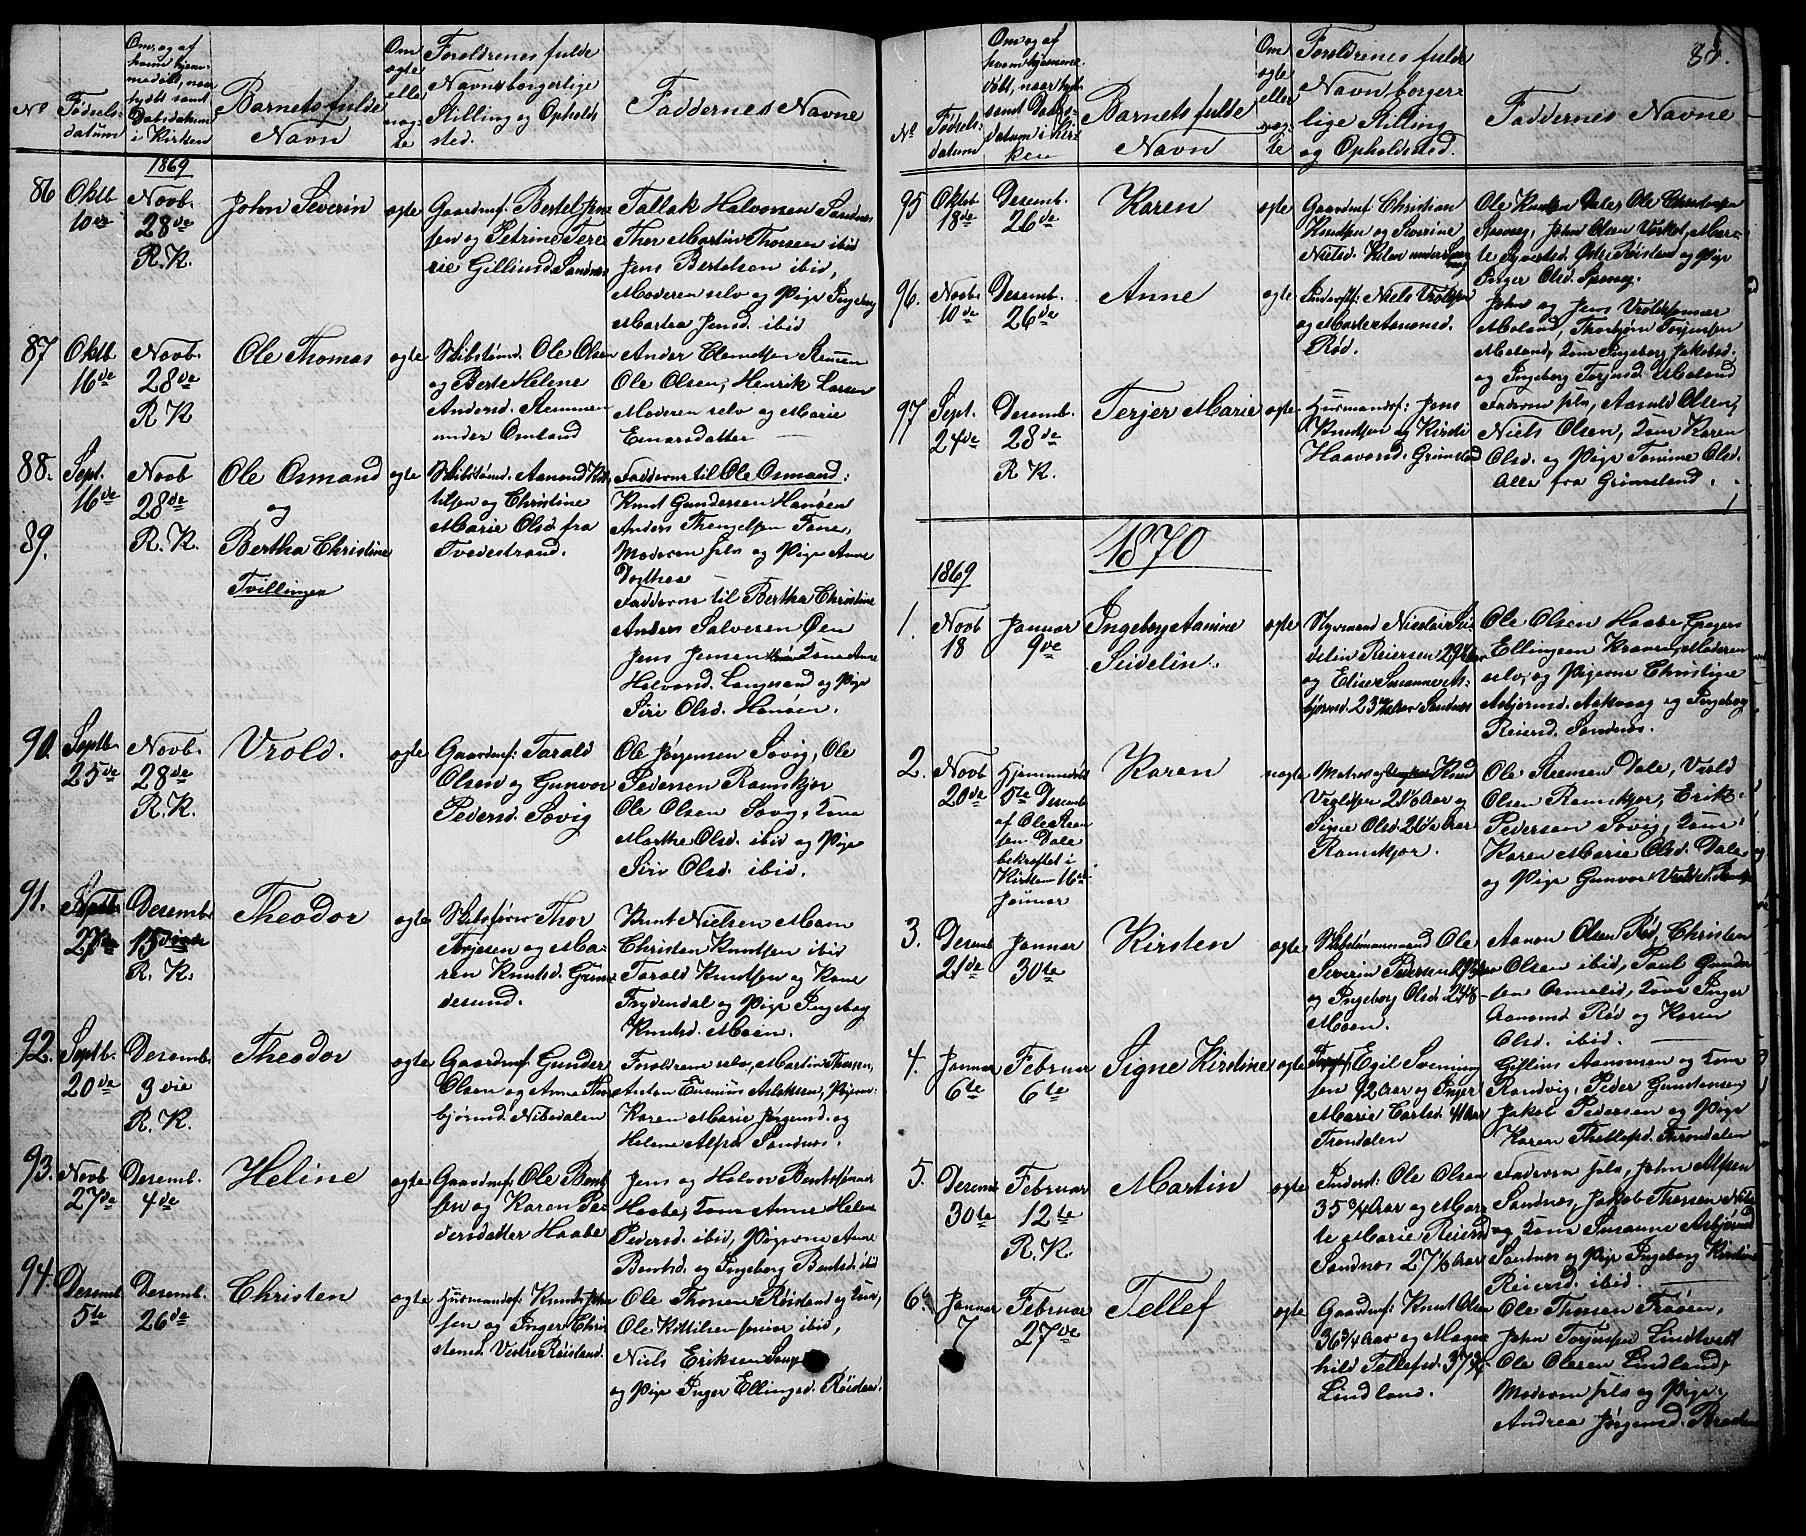 No
Fødsels-
datum
Om og af
hvem hjem-
medøbt, naar
døbt samt
Daabsdatum
i Kirken
Barnets fulde
Navn
Om
ægte
elle
uæg-
te
Foreldrenes fulde
Navn borgerlige
Stilling og Opholds
sted.
Faddernes Navne
1869
86
Oktb
10de
Novb.
28de
R. K.
John Severin
ægte
Gaardmf: Bertel Jen
sen og Petrine Tere
sie Gillinsd Sandnes
Tallak Halvorsen Sandnes
Thor Martin Thorsen ibid
Jens Bertelsen ibid,
Moderen selv og Pige Ingeborg
Martha Jensd. ibid
87
Oktb
16de
Novb.
28de
R. K
Ole Thomas
ægte
Skibstømd. Ole Olsen
og Berte Helene
Andersd. Stemmen
under Omland
Ander Clemetsen Stemmen
Ole Olsen, Henrik Larsen
Moderen selv og Marie
Einarsdatter
88.
Sept.
16de
Novb
28de
R. K.
Ole Osmand
og
89.
Bertha Christine
Tvillinger
ægte
Skibstømd. Aamund Kit
tilsen og Christine
Marie Olsd fra
Tvedestrand.
Fadderne til Ole Osmand:
Knut Gundersen Hansen
Anders Thengelsen Tane,
Moderen selv og Pige Anne
Dorthea
Fadderne til Bertha Christine
Anders Salvesen Øen
Jens Jensen Kone Anne
Halvorsd. Langesand og Pige
Siri Olsd. Hansen.
90.
Septb.
25de
Novb.
28de
R. K.
Vrold.
ægte
Gaardmf: Tarald
Olsen og Gunvor
Pedersd. Sovig
Ole Jørgensen Sovig, Ole
Pedersen Ramskjor
Ole Olsen Sovig, Kone
Marthe Olsd. ibid og Pige
Siri Olsd. ibid.
91.
27de
Desemb
15de
R. K.
Theodor
ægte
Skibsfører Thor
Terjesen og Ma-
ren Knutsd. Grim
desund.
Knut Nielsen Moen
Christen Knutsen ibid
Tarald Knutsen og Kone
Frydendal og Pige Ingeborg
Knutsd. Moen.
92.
Septb.
20de
Desemb.
3die
R. K.
Theodor
ægte
Gaardmf: Gunder
Olsen og Anne Thor
bjørnsd. Nibedalen
Foreldrene selv, Martin Thorsen,
Anton Rasmus Aslaksen, Pigerne
Karen Marie Jørgensd. og
Helene Alfsd Sandnes.
93.
Novb
27de
Desemb.
4de
Heline
ægte
Gaardmf: Ole Bent
sen og Karen Pe
dersdatter Haabe
Jens og Halvor Bentsønner
Haabe, Kone Anne Helene
Pedersd. ibid, Pigerne Anne
Bentsd. og Ingeborg Bentsd. ibid
94.
Desemb
5te
Desemb.
26de
Christen
ægte
Husmandsf: Knud John
sen og Inger Chri
stensd. Vestre Røisland.
Ole Thorsen Røisland og Kone,
Ole Kittilsen senior ibid,
Niels Eriksen
og Pige Inger Ellingsd. Røisland.
80.
No
Fødsels-
datum
Om og af
hvem hjemme
døbt, naar døbt
samt Daabs-
datum i Kir-
ken
Barnets fulde
Navn
Om
ægte
eller
uæg-
te
Foreldrenes fulde
Navn borger
lige Stilling
og Opholdssted.
Faddernes Navne
95
Oktbr
18de
Desemb.
26de
Karen
ægte
Gaardmf: Christian
Knutsen og Severine
Nielsd. Kilen under
Ole Knutsen Dale, Ole Christensen
Sparvig, John Olsen Virket, Mar-
te Syversd. Østre Røisland og Pige
Inger Olsd. Sparvig.
96.
Novbr
10de
Desemb.
26de
Anne
ægte
Inderstf: Niels Vroldsen
og Marte Aanonsd.
Rød.
John og Jens Vroldsønner
Moland, Thorbjørn Torjussen
Moland, Kone Ingeborg Jakobsd.
og Ingeborg Torjusd. Moland
97
Sept.
24de
Desemb.
28de
R K.
Terjer Marie
ægte
Husmandsf: Jens
Knudsen og Kirsti
Haavorsd. Grimsland
Faderen selv, Aanuld Olsen,
Niels Olsen, Kone Karen
Olsd. og Pige Tomine Olsd.
Alle fra Grimsland.
1870
1869
1.
Novb
18
Januar
9de
Ingeborg Aamine
Seidelin.
ægte
Styrmand Nicolai Sei
delin Reiersen
og Elise Susanne As-
bjørnsd. Sandnes
Ole Olsen Haabe, Gregers
Ellingsen Kraage, Moderen
selv, og Pigerne Christine
Asbjørnsd. Askvaag og Ingeborg
Reiersd. Sandnes.
2.
Novb
20de
Hjemmedøbt
5te Desemb
af Ole Steen
sen Dale
bekræftet i
Kirken 16de
Januar
Karen
uægte
Matros Knud
Vroldsen 21½ Aar og
Signe Olsd. Aar
Ramskjor.
Ole Steensen Dale, Vrold
Olsen Ramskjor, Erik
Pedersen Sovig, Kone
Karen Marie Olsd. Dale
og Pige Gunvor Vroldsd.
3.
Desemb
21de
Januar
30te
Kirsten
ægte
Skibstømmermand Ole
Severin Pedersen
og Ingeborg Olsd.
Moen.
Aanon Olsen Rød, Christen
Olsen ibid, Paul Gunder
sen Ormelid, Kone Inger
Aanonsd Rød og Karen
Olsd. ibid.
4.
Januar
6te
Februar
6te
Signe Kirstine
ægte
Egil Svening
sen 42 Aar og Inger
Marie Carlsd. 41 Aar
Trondalen
Gillius Aanonsen og Kone
Randvig, Peder Gunstensen
Jakob Pedersen og Pige
Karen Thellefsd. Throndalen
5.
Desemb
30te
Februar
12te
R. K.
Martin
ægte
Inderst: Ole Olsen
35¾ Aar og Mar
te Marie Reiersd
Sandnes 27½ Aar
Faderen selv, John Alfsen
Sandnes, Jakob Thorsen
og Kone Susanne Asbjørnsd
Sandnes og Pige Ingeborg Kirstine
Reiersd. ibid.
6
Januar
7
Februar
27de
Tellef
ægte
Gaardmf: Knut Olsen
36¾ Aar og Magn
hild Tellefsd. 37¾
Lindland.
Ole Thorsen Trøen,
John Torjussen Lindtveit
Ole Olesen Lindland,
Moderen selv og Pige
Andrea Jørgensd.